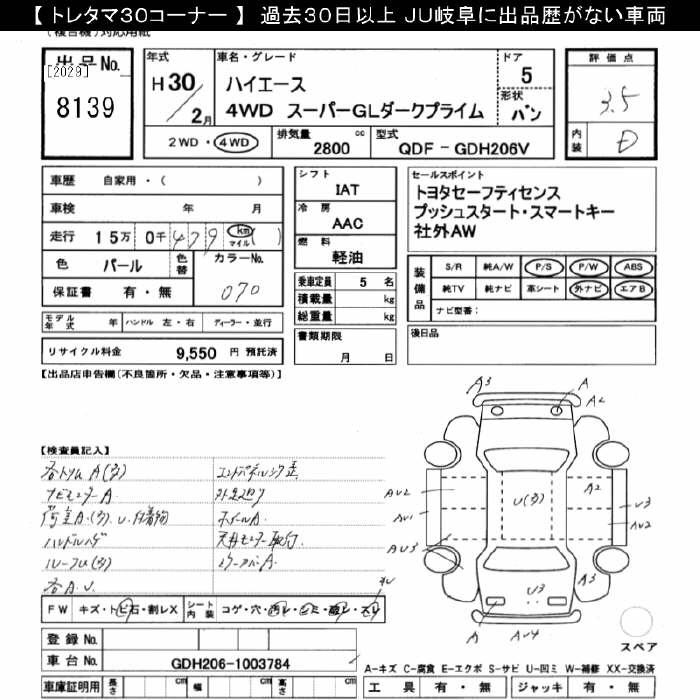 【 トレタマ30コーナー 】 過去30日以上 JU岐阜に出品歴がない車両
出品No.
[2029]
8139
年式
H30/2月
車名・グレード
ハイエース
4WD スーパーGLダークプライム
ドア
5
形状
バン
2WD・4WD
排気量 cc
2800
型式
QDF - GDH206V
評価点
3.5
内装
D
車歴 自家用・( )
車検 年 月
走行 15万 0千 479 km マイル ( )
色 パール
色替
カラーNo.
070
保証書 有・無
モデル年式 年 ハンドル 左・右 ディーラー・並行
リサイクル料金 9,550 円 預託済
シフト
IAT
冷房
AAC
燃料
軽油
乗車定員 5 名
積載量 kg
総重量 kg
書類期限
月 日
セールスポイント
トヨタセーフティセンス
プッシュスタート・スマートキー
社外AW
装備品
S/R 純A/W P/S P/W ABS
純TV 純ナビ 革シート 外ナビ エアB
ナビ型番:
後日品
【出品店申告欄(不良箇所・欠品・注意事項等)】
【検査員記入】
各トリムA(多)
ナビモニターA
荷室A(多)、U、付着物
ハンドルハゲ
ルーフU(多)
各A、U
ホイールA
天井モニター取付
A3
A
A2
AU2
AU1
AU3
U(多)
A2
U3
AU2
A3
U3
A
AU4
FW キズ・トビ石・割レX
シート内装
コゲ・穴・汚レ・シミ・破レ・スレ
スペア
登録No.
車台No.
GDH206-1003784
A-キズ C-腐食 E-エクボ S-サビ U-凹ミ W-補修 XX-交換済
車庫証明用 長さ cm 幅 cm 高さ cm
工具 有・無 ジャッキ 有・無